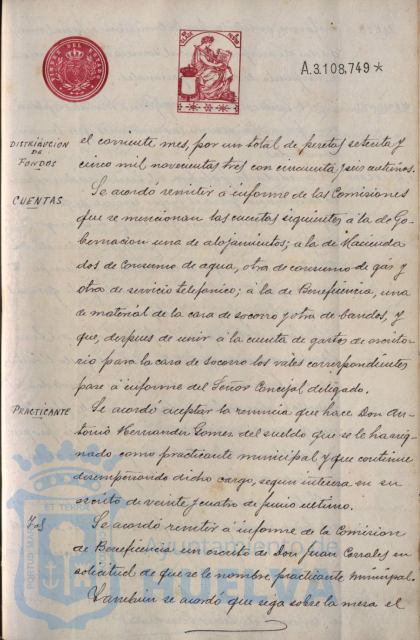 A.3.108,749*
DISTRIBUCION
DE
FONDOS
el corriente mes, por un total de pesetas setenta y
cinco mil novecientas tres con cincuenta y seis centimos.
CUENTAS
Se acordó remitir á informe de las Comisiones
que se mencionan las cuentas siguientes, á la de Go-
bernacion una de alojamientos; á la de Hacienda
dos de consumo de agua, otra de consumo de gas y
otra de servicio telefonico; á la de Beneficencia, una
de material de la casa de socorro y otra de bandos, y
que, despues de unir á la cuenta de gastos de escrito-
rio para la casa de socorro los vales correspondientes
pase á informe del Señor Concejal delegado.
PRACTICANTE
Se acordó aceptar la renuncia que hace Don An-
tonio Hernandez Gomez del sueldo que se le ha asig-
nado como practicante municipal y que continue
desempeñando dicho cargo, segun interesa en su
escrito de veinte y cuatro de junio ultimo.
Id
Se acordó remitir á informe de la Comision
de Beneficencia un escrito de Don Juan Corrales en
solicitud de que se le nombre practicante municipal.
Tambien se acordó que siga sobre la mesa el
ET TERRAE
Ayuntamiento de
HUELVA